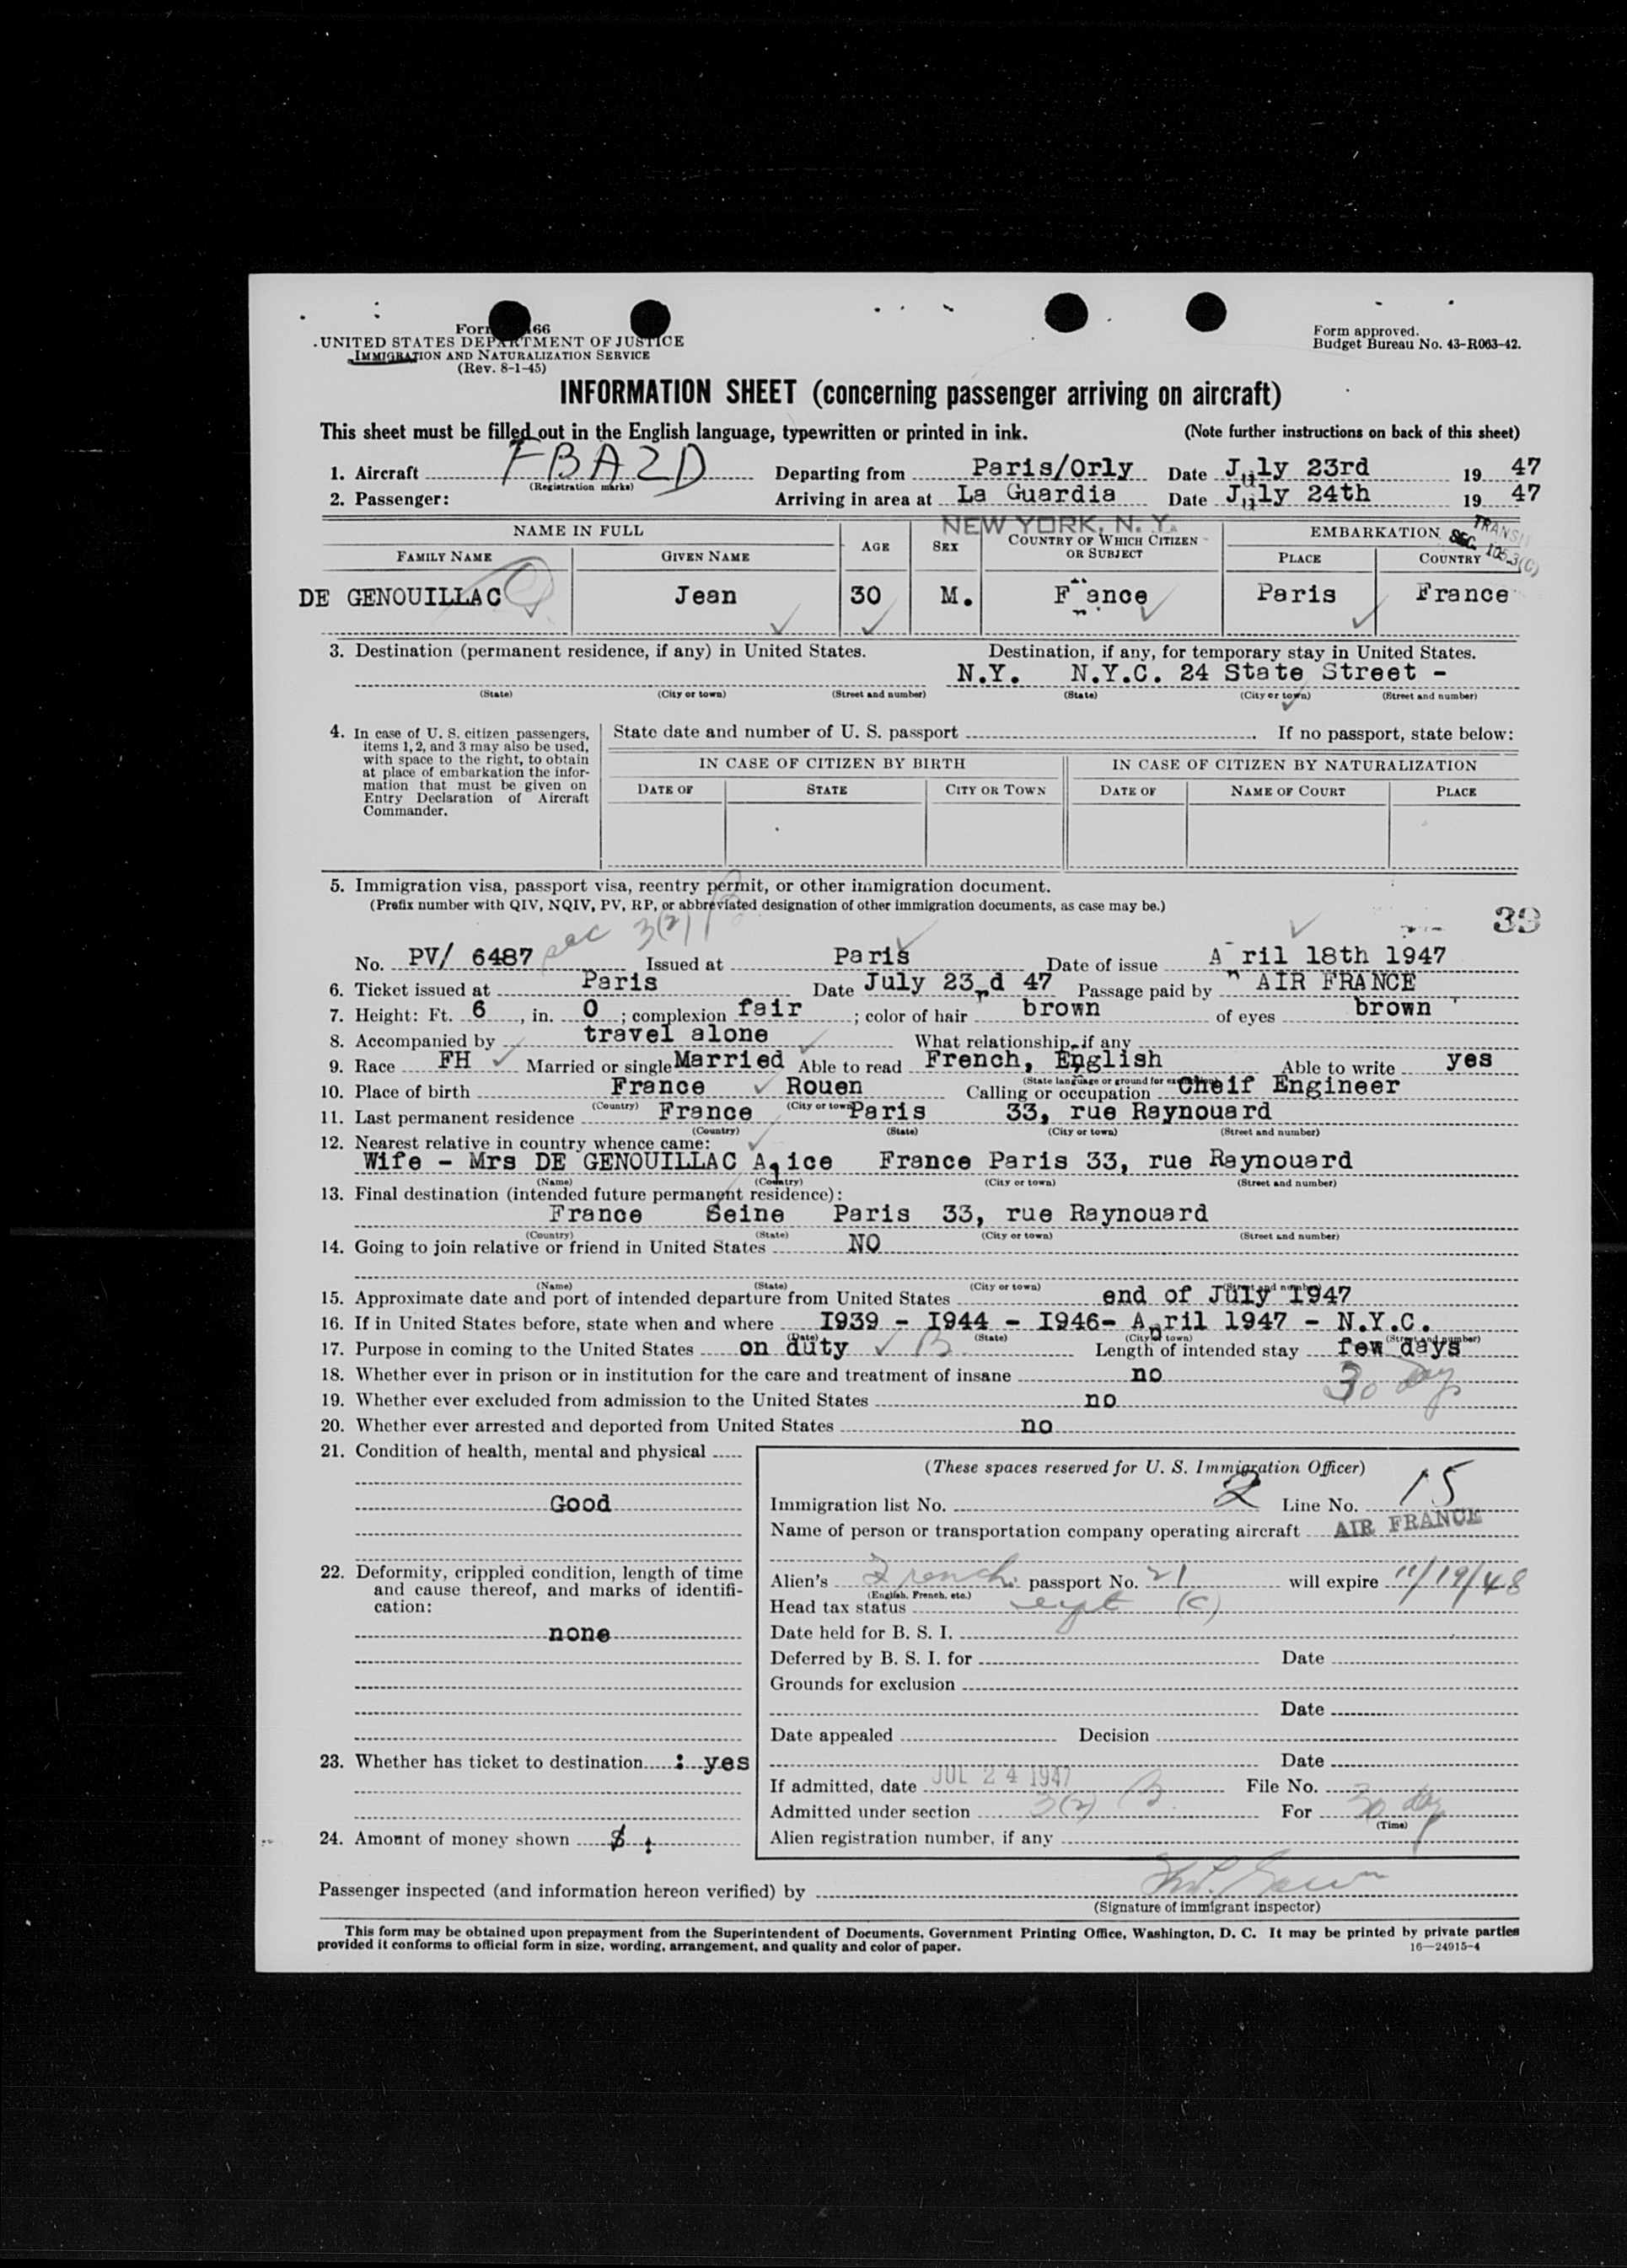 Form 66
UNITED STATES DEPARTMENT OF JUSTICE
IMMIGRATION AND NATURALIZATION SERVICE
(Rev. 8-1-45)
Form approved.
Budget Bureau No. 43-R063-42.
INFORMATION SHEET (concerning passenger arriving on aircraft)
This sheet must be filled out in the English language, typewritten or printed in ink. (Note further instructions on back of this sheet)
1. Aircraft FBAZD Departing from Paris/Orly Date July 23rd 19 47
(Registration marks)
2. Passenger: Arriving in area at La Guardia Date July 24th 19 47
NEW YORK, N. Y.
TRANSIT
SEC. 105.3(C)
NAME IN FULL AGE SEX COUNTRY OF WHICH CITIZEN OR SUBJECT EMBARKATION
FAMILY NAME GIVEN NAME PLACE COUNTRY
DE GENOUILLAC Jean 30 M. France Paris France
3. Destination (permanent residence, if any) in United States. Destination, if any, for temporary stay in United States.
N.Y. N.Y.C. 24 State Street -
(State) (City or town) (Street and number) (State) (City or town) (Street and number)
4. In case of U. S. citizen passengers, items 1, 2, and 3 may also be used, with space to the right, to obtain at place of embarkation the information that must be given on Entry Declaration of Aircraft Commander.
State date and number of U. S. passport If no passport, state below:
IN CASE OF CITIZEN BY BIRTH IN CASE OF CITIZEN BY NATURALIZATION
DATE OF STATE CITY OR TOWN DATE OF NAME OF COURT PLACE
5. Immigration visa, passport visa, reentry permit, or other immigration document.
(Prefix number with QIV, NQIV, PV, RP, or abbreviated designation of other immigration documents, as case may be.)
33
sec 3(2) B
No. PV/ 6487 Issued at Paris Date of issue April 18th 1947
6. Ticket issued at Paris Date July 23rd 47 Passage paid by AIR FRANCE
7. Height: Ft. 6, in. 0; complexion fair; color of hair brown of eyes brown
8. Accompanied by travel alone What relationship, if any
9. Race FH Married or single Married Able to read French, English Able to write yes
(State language or ground for exemption)
10. Place of birth France Rouen Calling or occupation Cheif Engineer
(Country) (City or town)
11. Last permanent residence France Paris 33, rue Raynouard
(Country) (State) (City or town) (Street and number)
12. Nearest relative in country whence came:
Wife - Mrs DE GENOUILLAC Alice France Paris 33, rue Raynouard
(Name) (Country) (City or town) (Street and number)
13. Final destination (intended future permanent residence):
France Seine Paris 33, rue Raynouard
(Country) (State) (City or town) (Street and number)
14. Going to join relative or friend in United States NO
(Name) (State) (City or town) (Street and number)
15. Approximate date and port of intended departure from United States end of July 1947
16. If in United States before, state when and where I939 - I944 - I946- April 1947 - N.Y.C.
(Date) (State) (City or town) (Street and number)
17. Purpose in coming to the United States on duty B Length of intended stay few days
30 days
18. Whether ever in prison or in institution for the care and treatment of insane no
19. Whether ever excluded from admission to the United States no
20. Whether ever arrested and deported from United States no
21. Condition of health, mental and physical
Good
22. Deformity, crippled condition, length of time and cause thereof, and marks of identification:
none
23. Whether has ticket to destination : yes
24. Amount of money shown $ :
(These spaces reserved for U. S. Immigration Officer)
Immigration list No. 2 Line No. 15
Name of person or transportation company operating aircraft AIR FRANCE
Alien's French passport No. 21 will expire 11/19/48
(English, French, etc.)
Head tax status expt (C)
Date held for B. S. I.
Deferred by B. S. I. for Date
Grounds for exclusion
Date
Date appealed Decision
Date
If admitted, date JUL 24 1947 File No.
Admitted under section 3(2) B For 30 day
(Time)
Alien registration number, if any
Passenger inspected (and information hereon verified) by
(Signature of immigrant inspector)
This form may be obtained upon prepayment from the Superintendent of Documents, Government Printing Office, Washington, D. C. It may be printed by private parties
provided it conforms to official form in size, wording, arrangement, and quality and color of paper. 16—24915-4